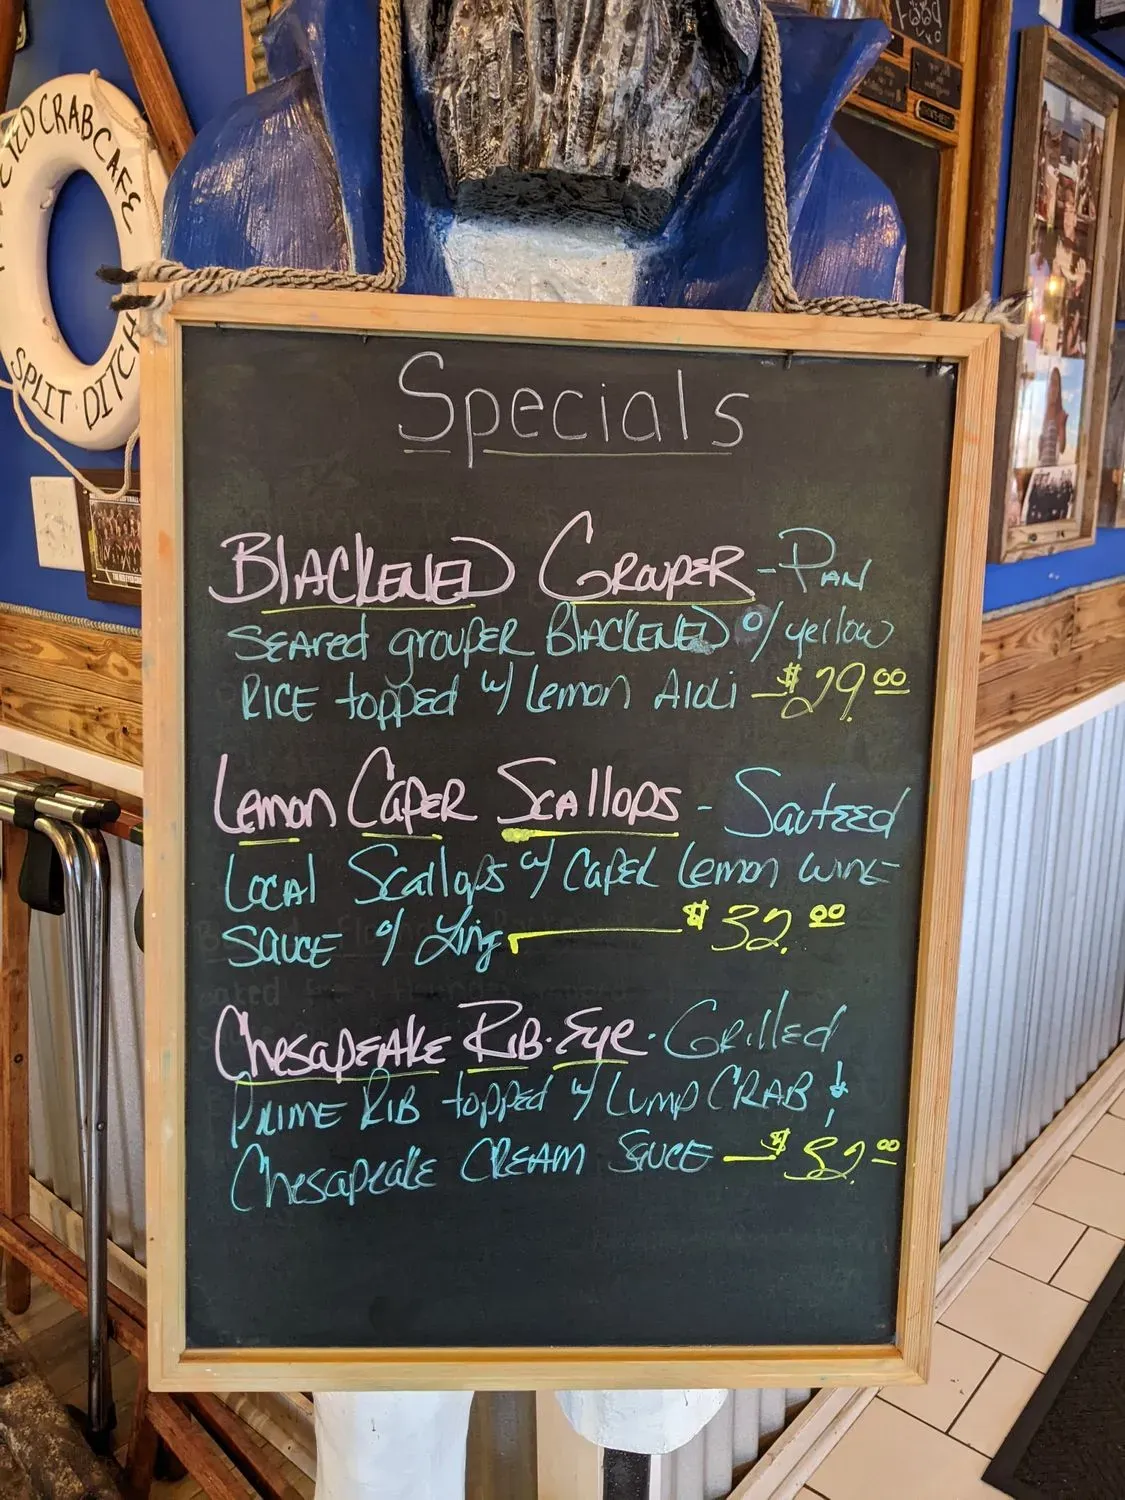 CRAB CAFE
SPLIT DITCH
Specials
BLACKENED GROUPER - PAN
SEARED grouper BLACKENED o/ yellow
RICE topped w/ Lemon AIOLI $29.00
Lemon CAPER SCALLOPS - Sauteed
LOCAL Scallops w/ CAPER Lemon WINE
SAUCE o/ Ling $32.00
CHESAPEAKE RIB-Eye - Grilled
PRIME RIB topped w/ Lump CRAB &
CHESAPEAKE CREAM SAUCE